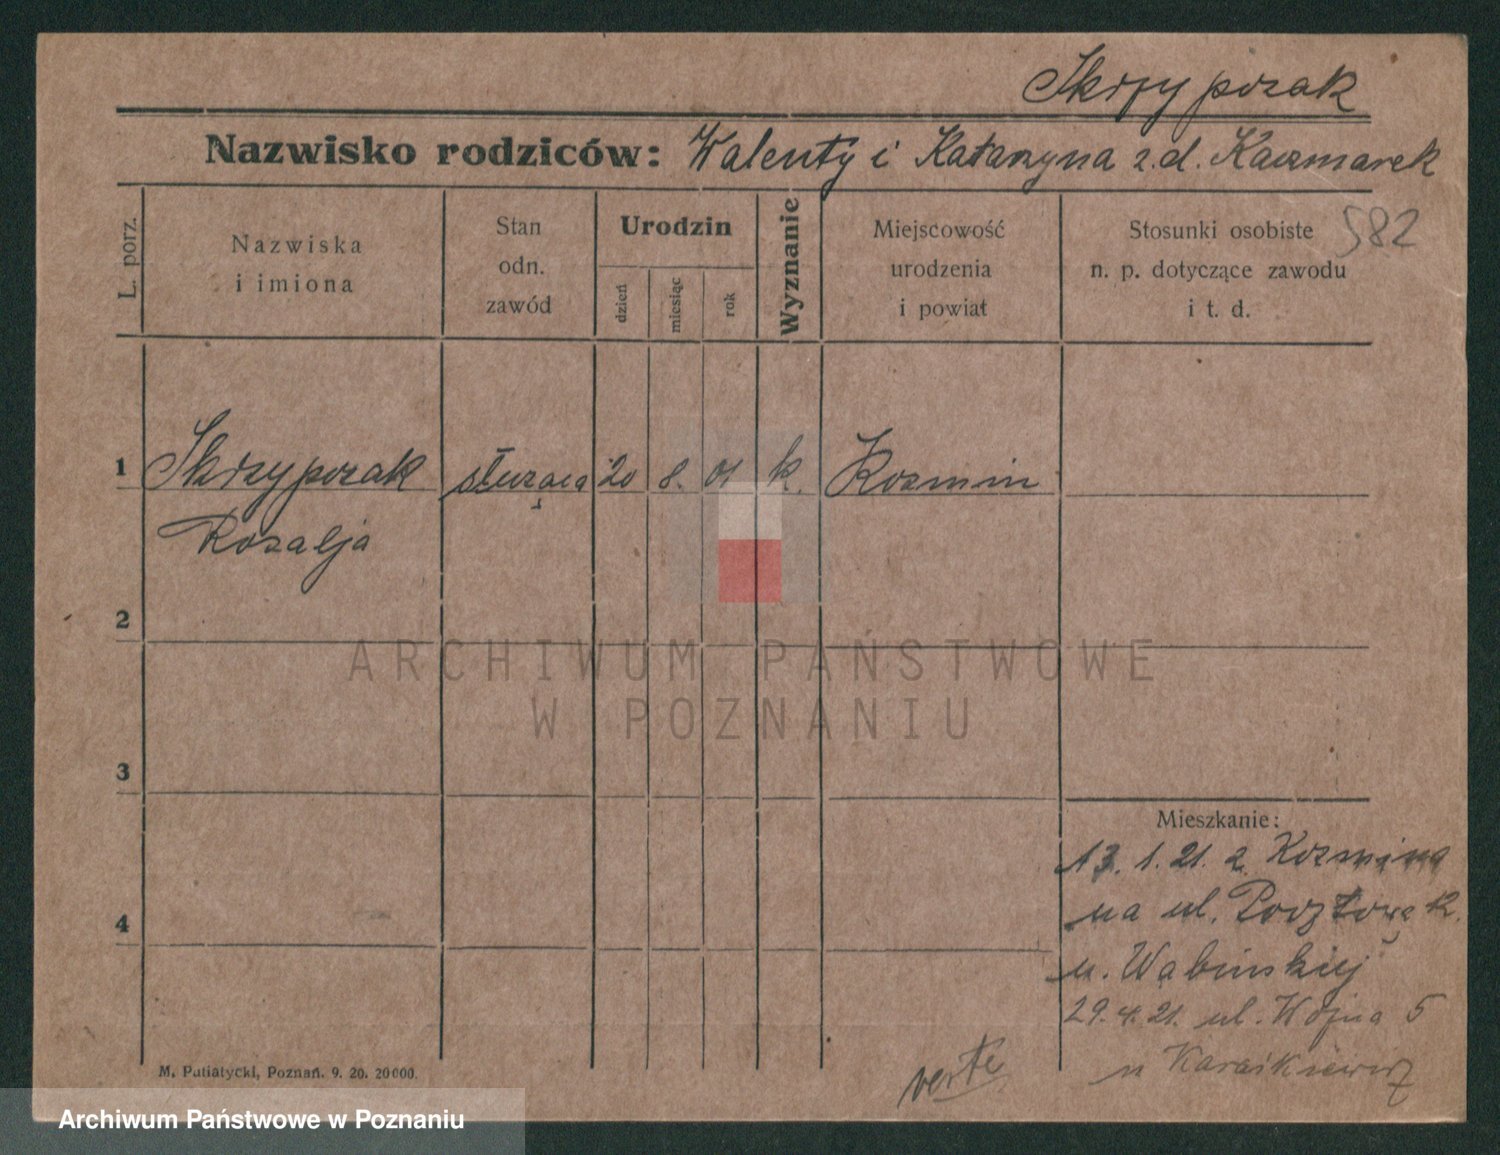 Skrzypczak
Nazwisko rodziców: Walenty i Katarzyna z.d. Kaczmarek
L. porz.
Nazwiska
i imiona
Stan
odn.
zawód
Urodzin
dzień
miesiąc
rok
Wyznanie
Miejscowość
urodzenia
i powiat
Stosunki osobiste
n. p. dotyczące zawodu
i t. d.
582
1 Skrzypczak służąca 20 8. 01 k. Kozmin
Rozalja
2
ARCHIWUM PAŃSTWOWE
W POZNANIU
3
Mieszkanie:
13. 1. 21. z Kozmina
4
na ul. Pocztową
u. Wabinskiej
29. 4. 21. ul. Wojna 5
u Karaśkiewicz
verte
M. Putiatycki, Poznań. 9. 20. 20000.
Archiwum Państwowe w Poznaniu